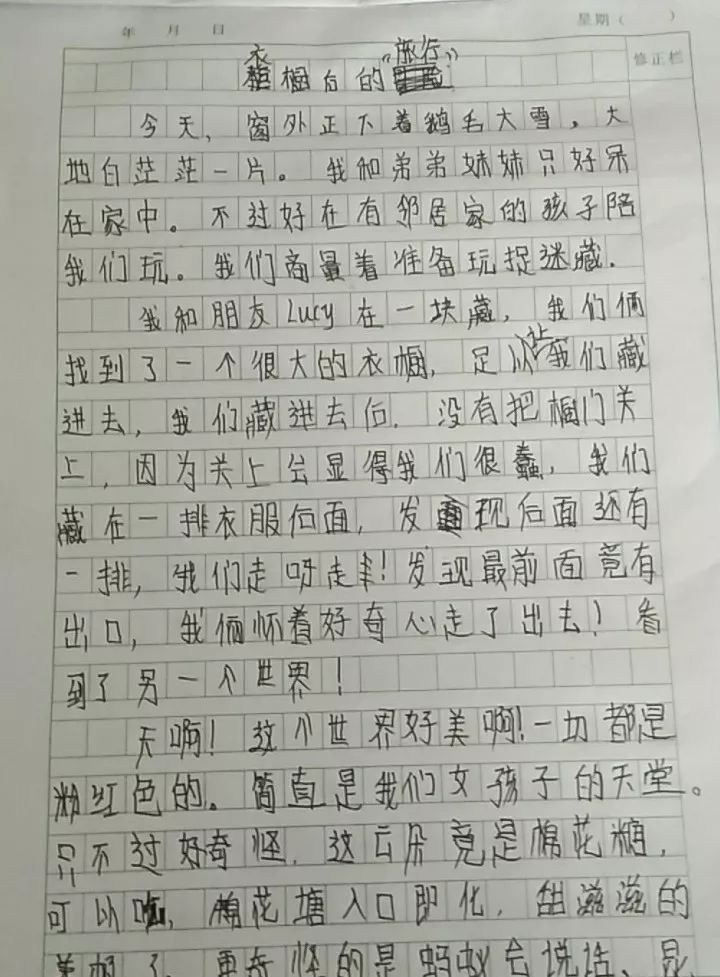 年 月 日 星期（ ）
修正栏
衣橱后的“旅行”
今天，窗外正下着鹅毛大雪，大
地白茫茫一片。我和弟弟妹妹只好呆
在家中。不过好在有邻居家的孩子陪
我们玩。我们商量着准备玩捉迷藏.
我和朋友Lucy在一块藏，我们俩
找到了一个很大的衣橱，足以让我们藏
进去，我们藏进去后，没有把橱门关
上，因为关上会显得我们很蠢，我们
藏在一排衣服后面，发现后面还有
一排，我们走呀走！发现最前面竟有
出口，我俩怀着好奇心走了出去！看
到了另一个世界！
天啊！这个世界好美啊！一切都是
粉红色的。简直是我们女孩子的天堂。
只不过好奇怪，这云朵竟是棉花糖，
可以吃，棉花塘入口即化，甜滋滋的
美极了，更奇怪的是蚂蚁会说话，